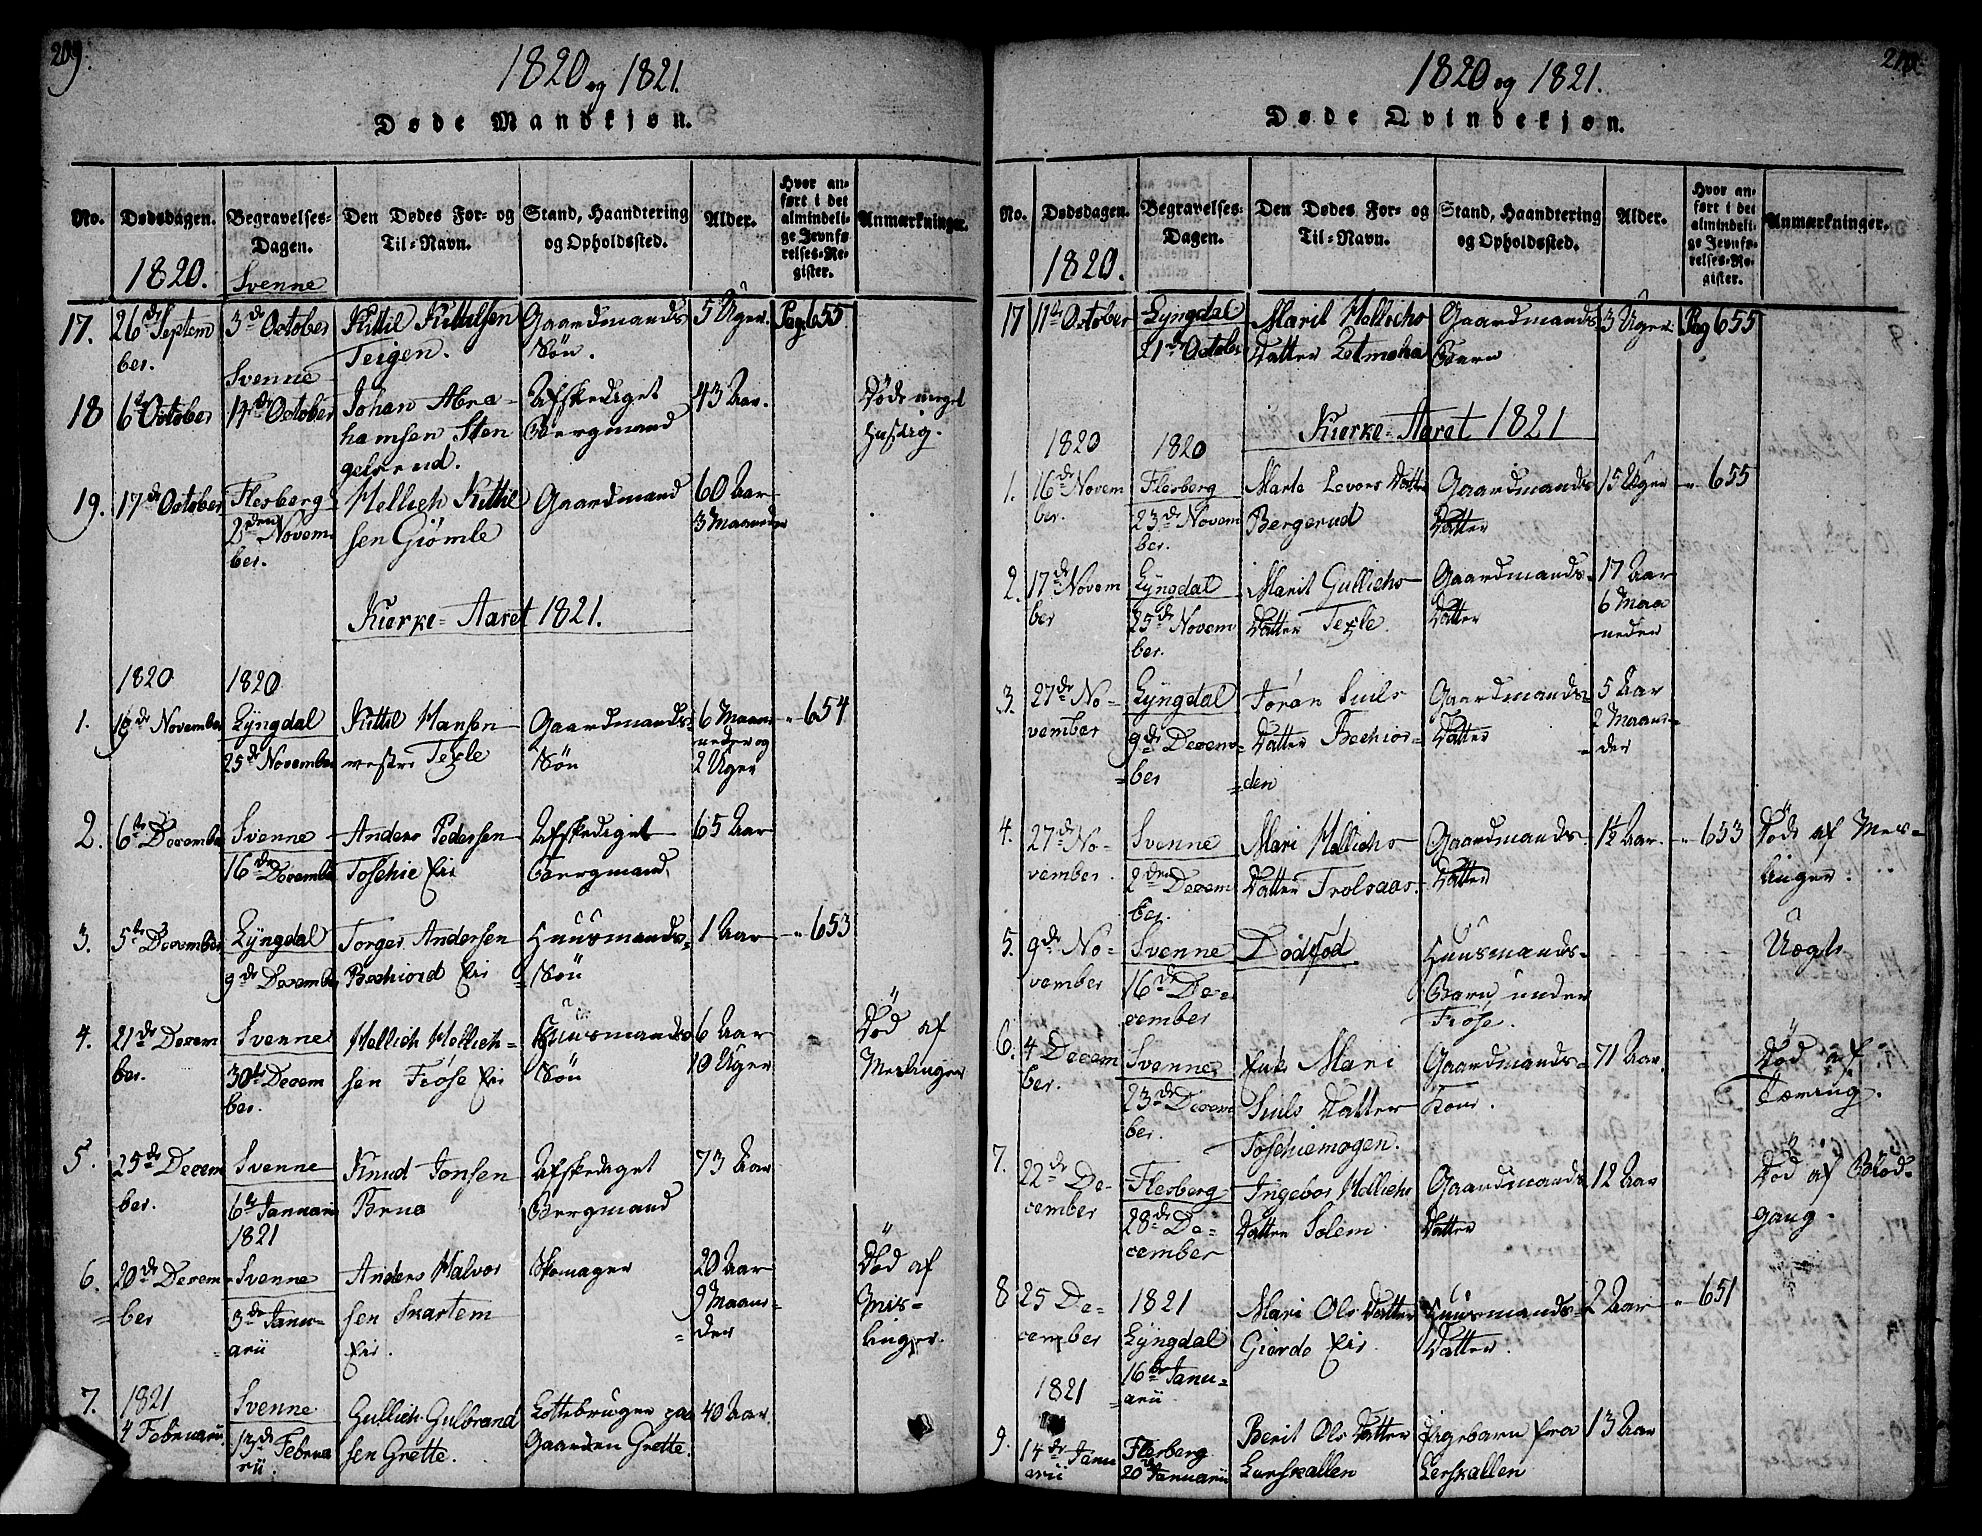 209.
1820 og 1821.
Døde Mandkjøn.
No.
Dødsdagen.
1820.
Begravelses-
Dagen.
Svenne
Den Dødes For- og
Til-Navn.
Stand, Haandtering
og Opholdssted.
Alder.
Hvor an-
ført i det
almindeli-
ge Jevnfø-
relses-Re-
gister.
Anmærkninger.
17.
26de Septem
ber.
3de October
Kittil Kittilsen
Teigen.
Gaardmands
Søn.
5 Uger.
Pag 655
18
6te October
Svenne
14de October
Johan Abra-
hamsen Sten
gelsrud.
Afskediget
Bergmand
43 Aar.
Døde meget
19.
17de October
Flesberg
2den Novem
ber.
Hellich Kittil
sen Giømle
Gaardmand
60 Aar
3 Maaneder
Kierke-Aaret 1821.
1820
1820
1.
19de November
Lÿngdal
25de November
Kittil Hansen
vestre Texle
Gaardmands
Søn
6 Maa
neder og
2 Uger
" 654
2.
6te December
Svenne
16de December
Anders Pedersen
Toschie Eie
Afskediget
Bergmand.
65 Aar
3.
5te December
Lÿngdal
9de December
Torger Andersen
Bechiord Eie
Huusmands
Søn
1 Aar
" 653
4.
21de Decem
ber.
Svenne
30te Decem
ber.
Hellich Hellich-
sen Frøse Eie
Huusmands
Søn
6 Aar
10 Uger
Død af
Meslinger
5.
25de Decem
ber.
Svenne
6te Januari
1821
Knud Jonsen
Afskediget
Bergmand
73 Aar
6.
20de Decem
ber
Svenne
3de Janu-
arii
Anders Halvor
sen Skartem
Eie.
Skomager
20 Aar
9 Maane-
der
Død af
Mes-
linger.
7.
1821
4 Februarii.
Svenne
13de Februa
rii.
Gullich Gulbrand
sen Grette.
Lottebruger paa
Gaarden Grette.
40 Aar.
210.
1820 og 1821.
Døde Qvindekjøn.
No.
Dødsdagen.
1820.
Begravelses-
Dagen.
Den Dødes For- og
Til-Navn.
Stand, Haandtering
og Opholdssted.
Alder.
Hvor an-
ført i det
almindeli-
ge Jevnfø-
relses-Re-
gister.
Anmærkninger.
17
11te October
Lÿngdal
21de October
Marit Hellichs
Datter Letmolia
Gaardmands
Barn
3 Uger.
Pag 655
Kierke-Aaret 1821
1820
1820
1.
16de Novem
ber.
Flesberg
23de Novem
ber.
Marte Levors Datter
Bergerud
Gaardmands
Datter
15 Uger
" 655
2.
17de Novem
ber
Lÿngdal
25de Novem
ber.
Marit Gullichs
Datter Texle.
Gaardmands
Datter
17 Aar
6 Maa
neder
3.
27de No-
vember
Lÿngdal
9de Decem-
ber
Jøran Juils
Datter Bechior-
den
Gaardmands
Datter
5 Aar
2 Maane-
der
4.
27de No-
vember.
Svenne
2den Decem
ber.
Mari Hellichs
Datter Trolsaas.
Gaardmands
Datter
1½ Aar.
" 653
Død af Mes-
linger.
5.
9de No-
vember
Svenne
16de De-
cember
Dødfød
Huusmands-
Barn, under
Frøse.
Uægte
6.
4 Decem
ber.
Svenne
23de Decem
ber.
Enke Mari
Juils Datter
Toschiemogen.
Gaardmands-
Kone.
71 Aar.
Død af
Tæring.
7.
22de De-
cember
Flesberg
28de De-
cember
Ingebor Hellichs
Datter Solem
Gaardmands
Datter
12 Aar
Død af Blod-
gang.
8
25 De-
cember
1821
Lÿngdal
16de Janu-
arii
Mari Ols Datter
Giorde Eie.
Huusmands-
Datter.
2 Aar
" 651
1821
9.
14de Janu
arii
Flesberg
20de Januarii
Berit Ols Datter
Lerskallen
Pigebarn fra
Lerskallen
13 Aar